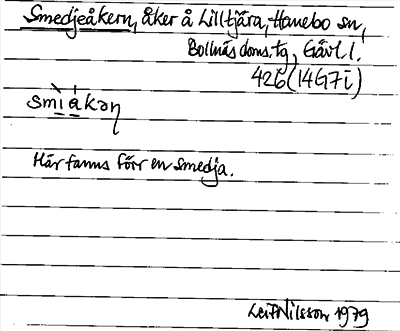 Smedjeåkern, åker å Lilltjära, Hanebo sn,
Bollnäs doms.tg, Gävl.l.
426 (14G7i)
smìákəɳ
Här fanns förr en smedja.
Leif Nilsson 1979